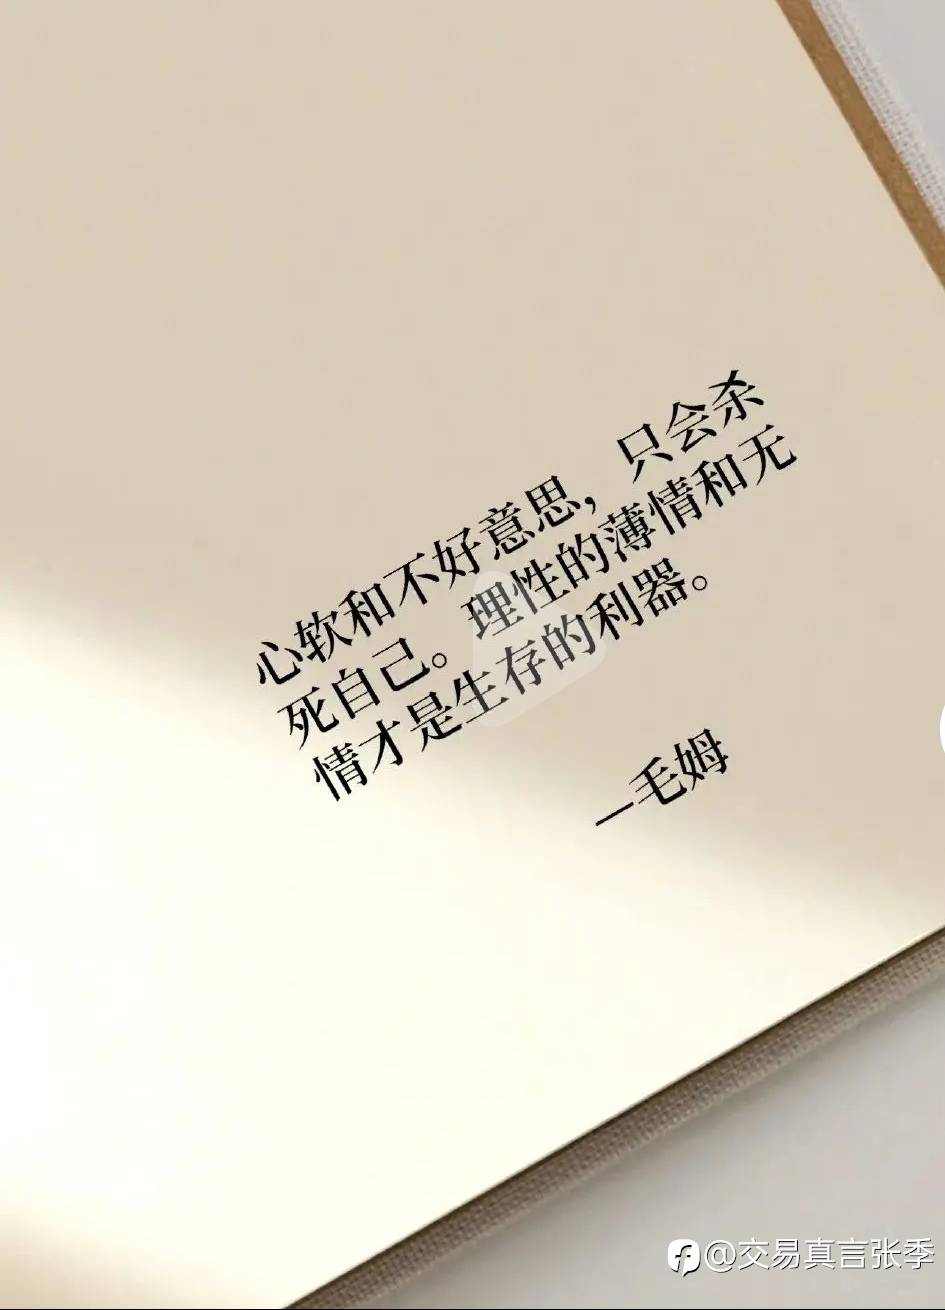 心软和不好意思，只会杀
死自己。理性的薄情和无
情才是生存的利器。
—毛姆
@交易真言张季